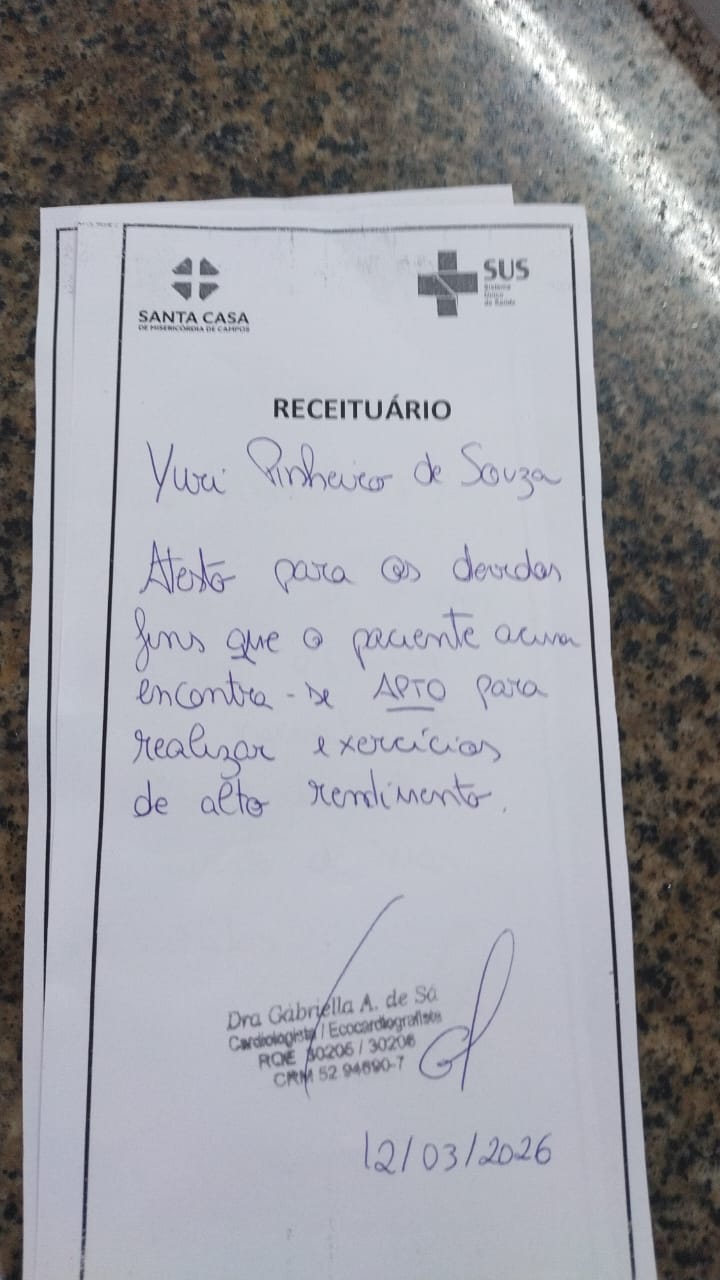 SANTA CASA
DE MISERICÓRDIA DE CAMPOS
SUS
Sistema
Único
de Saúde
RECEITUÁRIO
Yuri Pinheiro de Souza
Atesto para os devidos
fins que o paciente acima
encontra-se APTO para
realizar exercícios
de alto rendimento.
Dra Gabriella A. de Sá
Cardiologista / Ecocardiografista
RQE 30205 / 30206
CRM 52 94690-7
12/03/2026